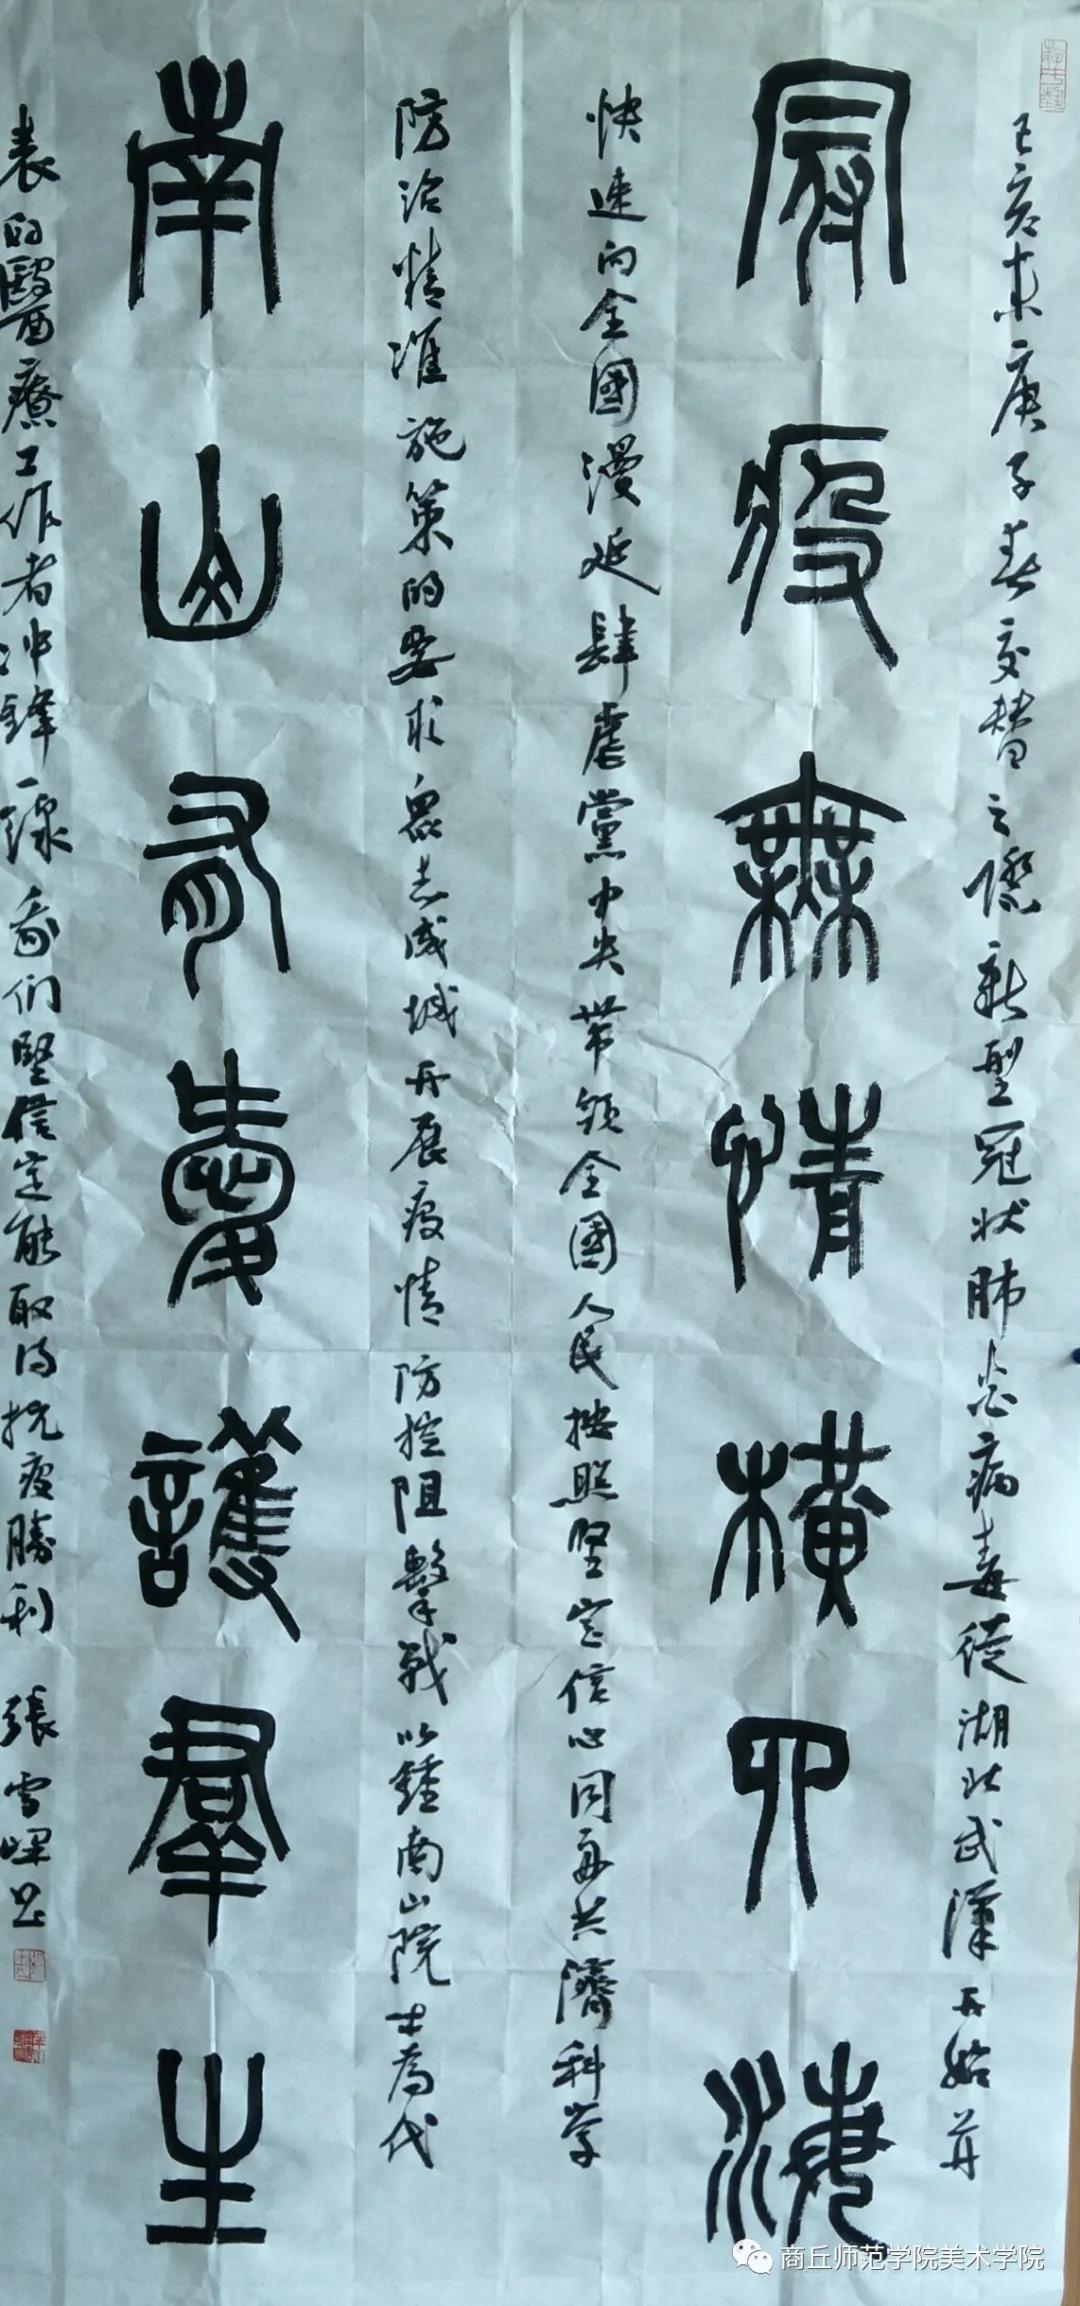 己亥末庚子春交替之際新型冠狀肺炎病毒從湖北武漢开始并
冠疫無情橫四海
快速向全國漫延肆虐黨中央带领全國人民按照堅定信心同舟共濟科学
防治精準施策的要求眾志成城开展疫情防控阻擊戰以鍾南山院士為代
南山有愛護群生
表的醫療工作者冲鋒一線我们堅信定能取得抗疫勝利 張雪峰書
商丘师范学院美术学院